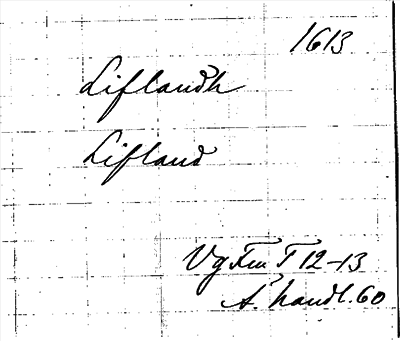 1613
Liflandh
Lifland
VgFm T 12-13
S. handl. 60